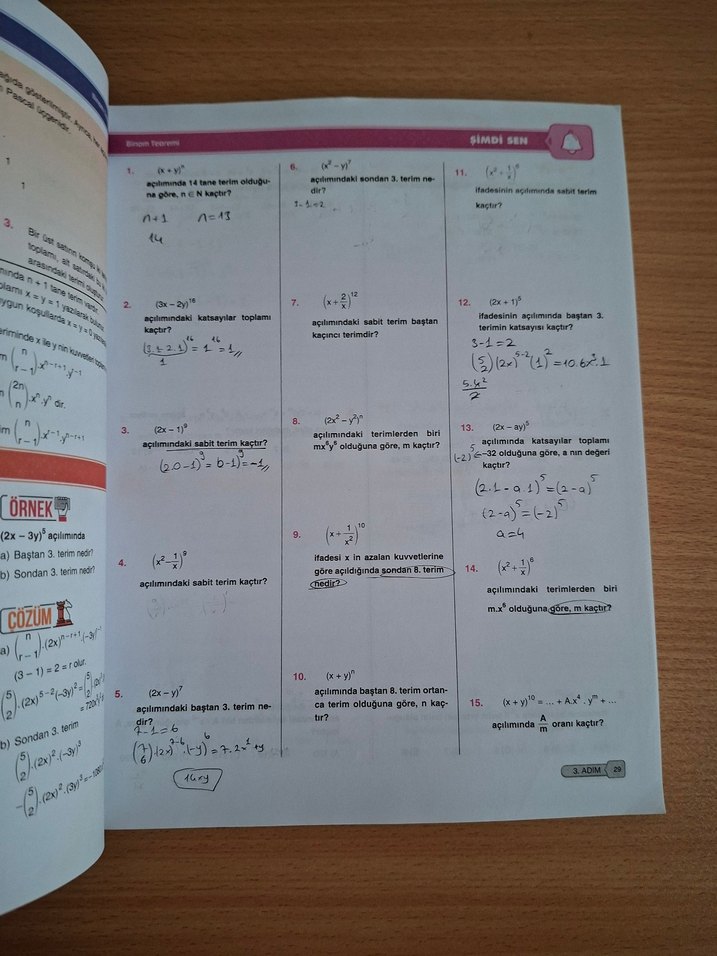 ağıda gösterilmiştir. Ayrıca, her
n Pascal üçgenidir.
1
1
3. Bir üst satırın komşu iki
toplamı, alt satırdaki bu
arasındaki terimi oluşturur
nında n + 1 tane terim vardır.
plamı x = y = 1 yazılarak bulunur.
uygun koşullarda x = y = 0 yazılarak
eriminde x ile y nin kuvvetleri toplamı
(n r – 1).xⁿ⁻ʳ⁺¹.yʳ⁻¹
(2n n).xⁿ.yⁿ dir.
(n r – 1).xʳ⁻¹.yⁿ⁻ʳ⁺¹
ÖRNEK
(2x – 3y)⁵ açılımında
a) Baştan 3. terim nedir?
b) Sondan 3. terim nedir?
ÇÖZÜM
a) (n r – 1).(2x)ⁿ⁻ʳ⁺¹.(–3y)ʳ⁻¹
(3 – 1) = 2 = r olur.
(5 2).(2x)⁵⁻²(–3y)² = (5 2).(2x)³
= 720x³y²
b) Sondan 3. terim
(5 2).(2x)².(–3y)³
–(5 2).(2x)².(3y)³ = –1080
Binom Teoremi
ŞİMDİ SEN
1. (x + y)ⁿ
açılımında 14 tane terim olduğu-
na göre, n ∈ N kaçtır?
n+1 n=13
14
2. (3x – 2y)¹⁶
açılımındaki katsayılar toplamı
kaçtır?
(3.1 - 2.1)¹⁶ = 1¹⁶ = 1
1
3. (2x – 1)⁹
açılımındaki sabit terim kaçtır?
(2.0-1)⁹ = (0-1)⁹ = -1
4. (x² – 1/x)⁹
açılımındaki sabit terim kaçtır?
5. (2x – y)⁷
açılımındaki baştan 3. terim ne-
dir?
7-1=6
(7 6).(2x)⁷⁻⁶.(-y)⁶ = 7.2x¹+y
14xy
6. (x² – y)⁷
açılımındaki sondan 3. terim ne-
dir?
3-1=2
7. (x + 2/x)¹²
açılımındaki sabit terim baştan
kaçıncı terimdir?
8. (2x² – y²)ⁿ
açılımındaki terimlerden biri
mx⁶y⁶ olduğuna göre, m kaçtır?
9. (x + 1/x²)¹⁰
ifadesi x in azalan kuvvetlerine
göre açıldığında sondan 8. terim
nedir?
10. (x + y)ⁿ
açılımında baştan 8. terim ortan-
ca terim olduğuna göre, n kaç-
tır?
11. (x² + 1/x)⁶
ifadesinin açılımında sabit terim
kaçtır?
12. (2x + 1)⁵
ifadesinin açılımında baştan 3.
terimin katsayısı kaçtır?
3-1=2
(5 2)(2x)⁵⁻²(1)² = 10.6x³.1
5.4²/2
13. (2x – ay)⁵
açılımında katsayılar toplamı
(-2)⁵ ← –32 olduğuna göre, a nın değeri
kaçtır?
(2.1 - a.1)⁵ = (2-a)⁵
(2-a)⁵ = (-2)⁵
a=4
14. (x² + 1/x)⁶
açılımındaki terimlerden biri
m.x⁶ olduğuna göre, m kaçtır?
15. (x + y)¹⁰ = ... + A.x⁴ . yᵐ + ...
açılımında A/m oranı kaçtır?
3. ADIM 29